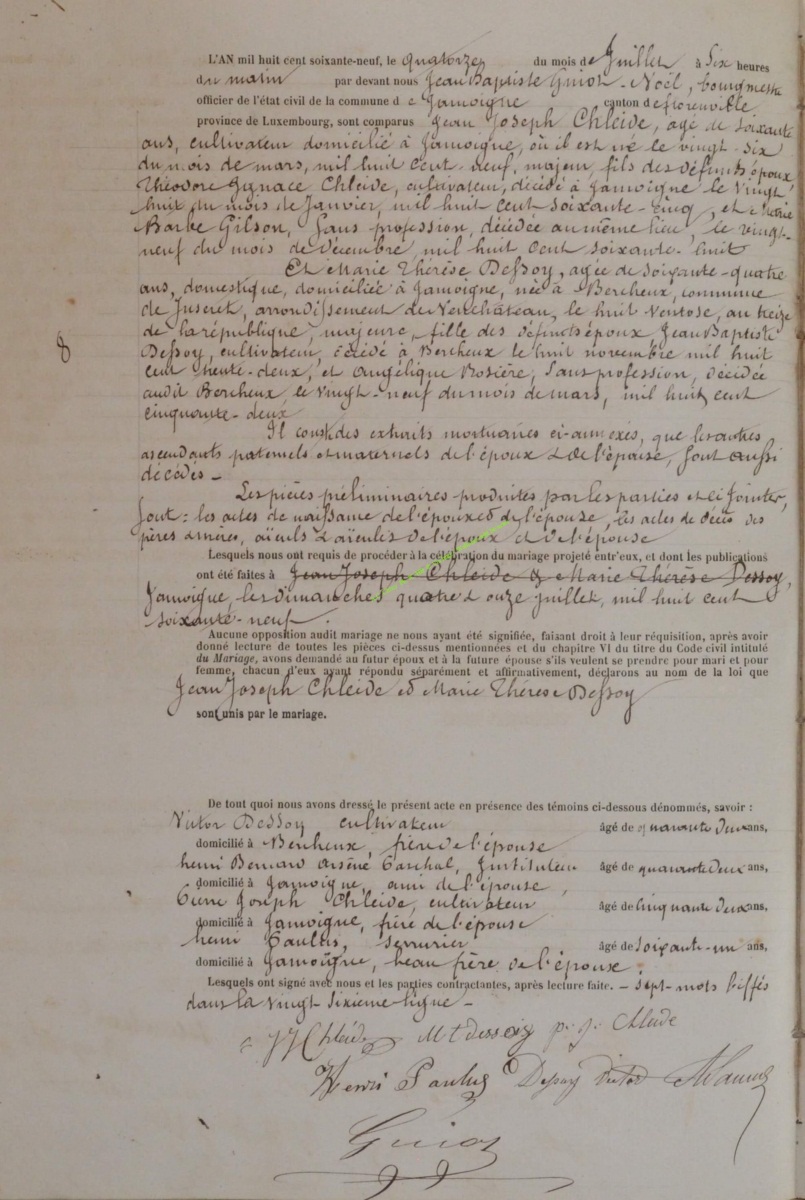 L'AN mil huit cent soixante-neuf, le quatorze du mois de Juillet à Six heures
du matin par devant nous Jean Baptiste Guiot-Noël, bourgmestre
officier de l'état civil de la commune de Jamoigne canton de florenville
province de Luxembourg, sont comparus Jean Joseph Chleide, agé de soixante
ans, cultivateur domicilié à Jamoigne, où il est né le vingt-six
du mois de mars, mil huit cent neuf, majeur, fils des défunts époux
Théodore Ignace Chleide, cultivateur, décédé à Jamoigne le vingt
huit du mois de Janvier, mil huit cent soixante-cinq, et Marie
Barbe Gilson, Sans profession, décédée au même lieu, le vingt-
neuf du mois de décembre, mil huit cent soixante-huit
Et Marie Thérèse Dessoy, agée de soixante-quatre
ans, domestique, domiciliée à Jamoigne, née à Bercheux, commune
de Juseret, arrondissement de Neuchâteau, le huit Ventose, an treize
de la république, majeure, fille des défunts époux Jean Baptiste
8
Dessoy, cultivateur, décédé à Bercheux le huit novembre mil huit
cent trente-deux, et Angélique Rosière, Sans profession, décédée
audit Bercheux, le vingt-neuf du mois de mars, mil huit cent
cinquante-deux
Il conste des extraits mortuaires ci-annexés, que les autres
ascendants paternels et maternels de l'époux & de l'épouse, sont aussi
décédés -
Les pièces préliminaires produites par les parties et ci jointes,
sont: les actes de naissance de l'époux et de l'épouse, les actes de décès des
pères & mères, aïeuls & aïeules de l'époux et de l'épouse
Lesquels nous ont requis de procéder à la célébration du mariage projeté entr'eux, et dont les publications
ont été faites à Jean Joseph Chleide & Marie Thérèse Dessoy,
Jamoigne, les dimanches quatre & onze juillet, mil huit cent
soixante-neuf.
Aucune opposition audit mariage ne nous ayant été signifiée, faisant droit à leur réquisition, après avoir
donné lecture de toutes les pièces ci-dessus mentionnées et du chapitre VI du titre du Code civil intitulé
du Mariage, avons demandé au futur époux et à la future épouse s'ils veulent se prendre pour mari et pour
femme, chacun d'eux ayant répondu séparément et affirmativement, déclarons au nom de la loi que
Jean Joseph Chleide et Marie Thérèse Dessoy
sont unis par le mariage.
De tout quoi nous avons dressé le présent acte en présence des témoins ci-dessous dénommés, savoir :
Victor Dessoy cultivateur âgé de quarante deux ans,
domicilié à Bercheux, frère de l'épouse
henri Bernard Arsène, Instituteur âgé de quarante deux ans,
domicilié à Jamoigne, ami de l'épouse,
Pierre Joseph Chleide, cultivateur âgé de cinquante deux ans,
domicilié à Jamoigne, frère de l'épouse
henri Paulus, serrurier âgé de soixante-un ans,
domicilié à Jamoigne, beau frère de l'épouse.
Lesquels ont signé avec nous et les parties contractantes, après lecture faite. - sept-mots biffés
dans la vingt sixième ligne -
JJ Chleide Mt dessoy p. j. Chleide
Henri Paulus Dessoy Victor
Guiot